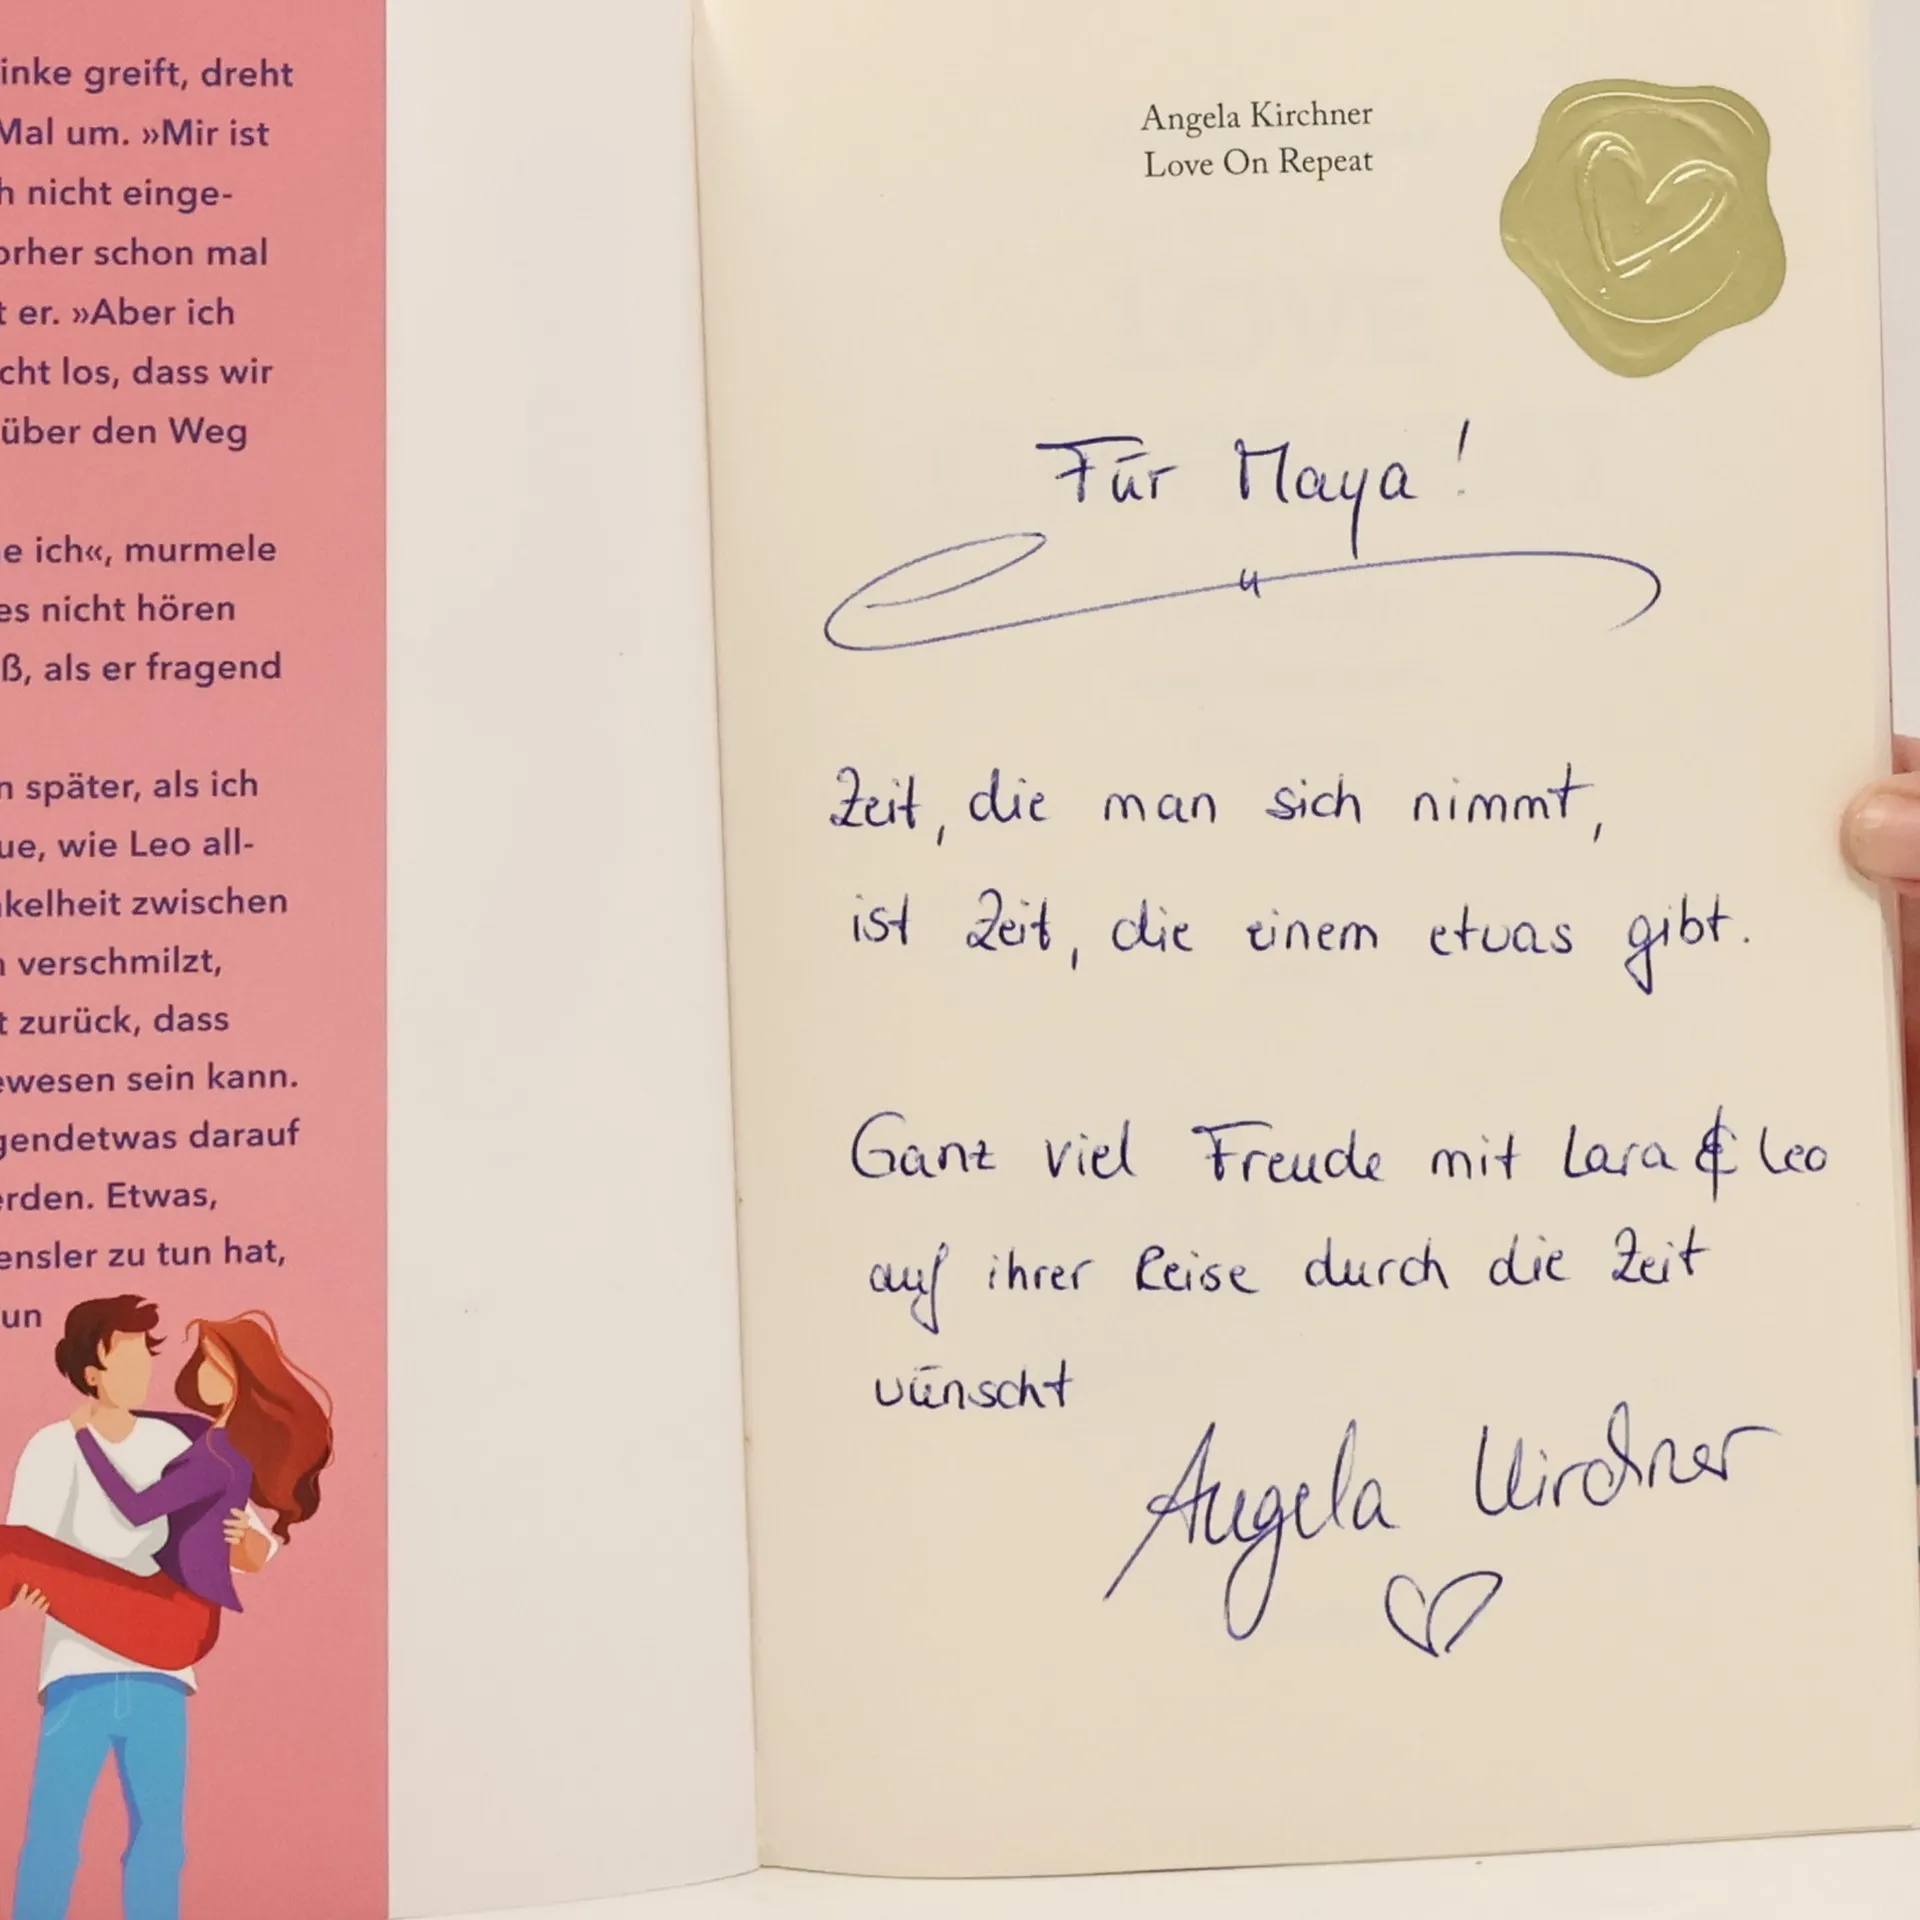 inke greift, dreht
Mal um. »Mir ist
h nicht einge-
orher schon mal
t er. »Aber ich
cht los, dass wir
über den Weg
e ich«, murmele
es nicht hören
ß, als er fragend
n später, als ich
ue, wie Leo all-
kelheit zwischen
n verschmilzt,
t zurück, dass
ewesen sein kann.
gendetwas darauf
erden. Etwas,
ensler zu tun hat,
un
Angela Kirchner
Love On Repeat
Für Maya!
Zeit, die man sich nimmt,
ist Zeit, die einem etwas gibt.
Ganz viel Freude mit Lara & Leo
auf ihrer Reise durch die Zeit
wünscht
Angela Kirchner